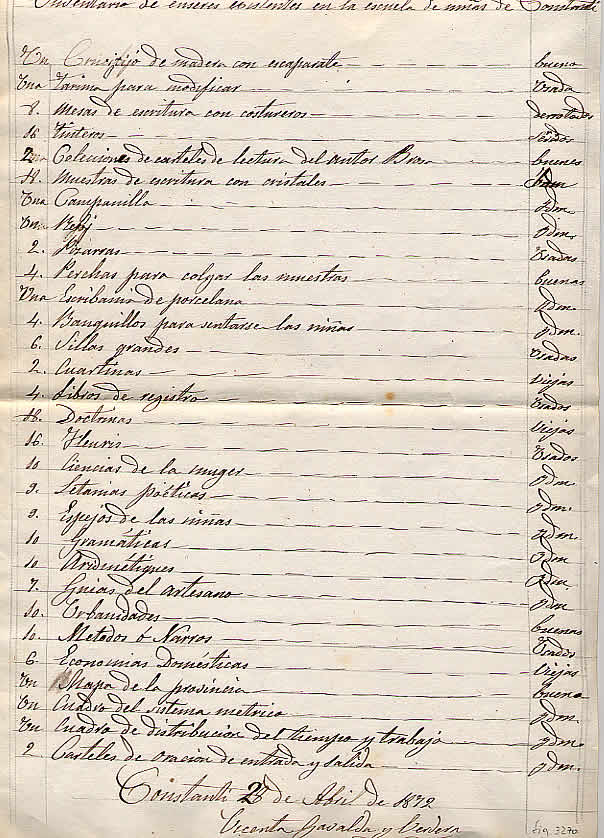 Inventario de enseres existentes en la escuela de niñas de Constantí
Un Crucifijo de madera con escaparate bueno
Una tarima para modificar Usada
8. Mesas de escritura con costureros derrotados
16 tinteros
Colecciones de carteles de lectura del autor buenos
18. Muestras de escritura con cristales
Una Campanilla Ydm.
Un Reloj Ydm.
2. Pizarras Usadas
4. Perchas para colgar las muestras buenas
Una Escribania de porcelana Ydm.
4. Banquillos para sentarse las niñas Ydm.
6. Sillas grandes Usadas
2. Cuartinas viejas
4. Libros de registro Usados
18. Doctrinas viejas
16. Fleuris Usados
10 Ciencias de la muger Ydm.
9. Letanias poéticas Ydm.
9. Espejos de las niñas Ydm.
10 Gramáticas Ydm
10 Aridmétiques Ydm.
7. Guias del artesano Ydm
10. Urbanidades buenas
10. Metodos ó Narros Usados
6. Economias Domésticas viejas
Un Mapa de la provincia bueno
Un Cuadro del sistema metrico Ydm.
Un Cuadro de distribucion del tiempo y trabajo Ydm.
2 Carteles de oracion de entrada y salida Ydm.
Constantí 28 de Abril de 1872
Vicenta Gavaldá y Cerdera
fig. 3270